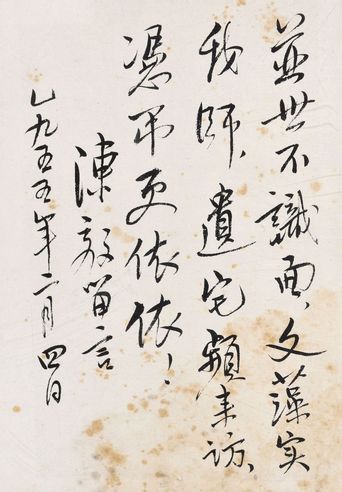 並世不識面，文藻实
我師，遺宅頻来訪，
憑吊更依依！
陳毅留言
一九五五年二月四日